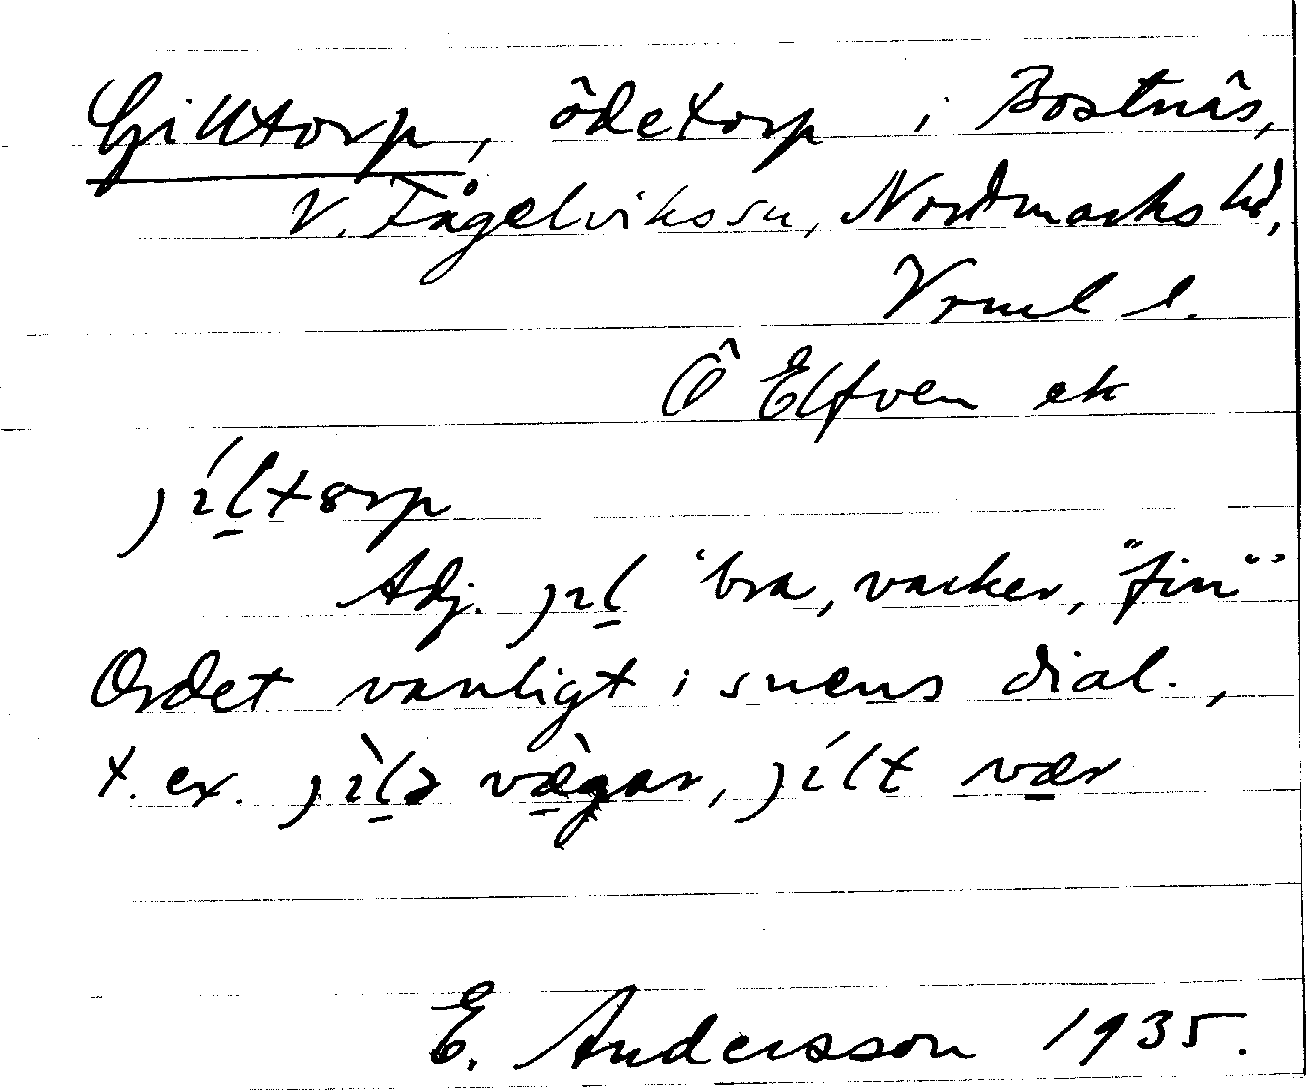 Gilltorp, ödetorp i Bostnäs,
V. Fågelvikssn, Nordmarks hd,
Vrml l.
Ö Elfven ek
jíltorp
Adj. jıl 'bra, vacker, "fin"'
Ordet vanligt i svens dial.,
t. ex. jìlə vægar, jílt vær
E. Andersson 1935.